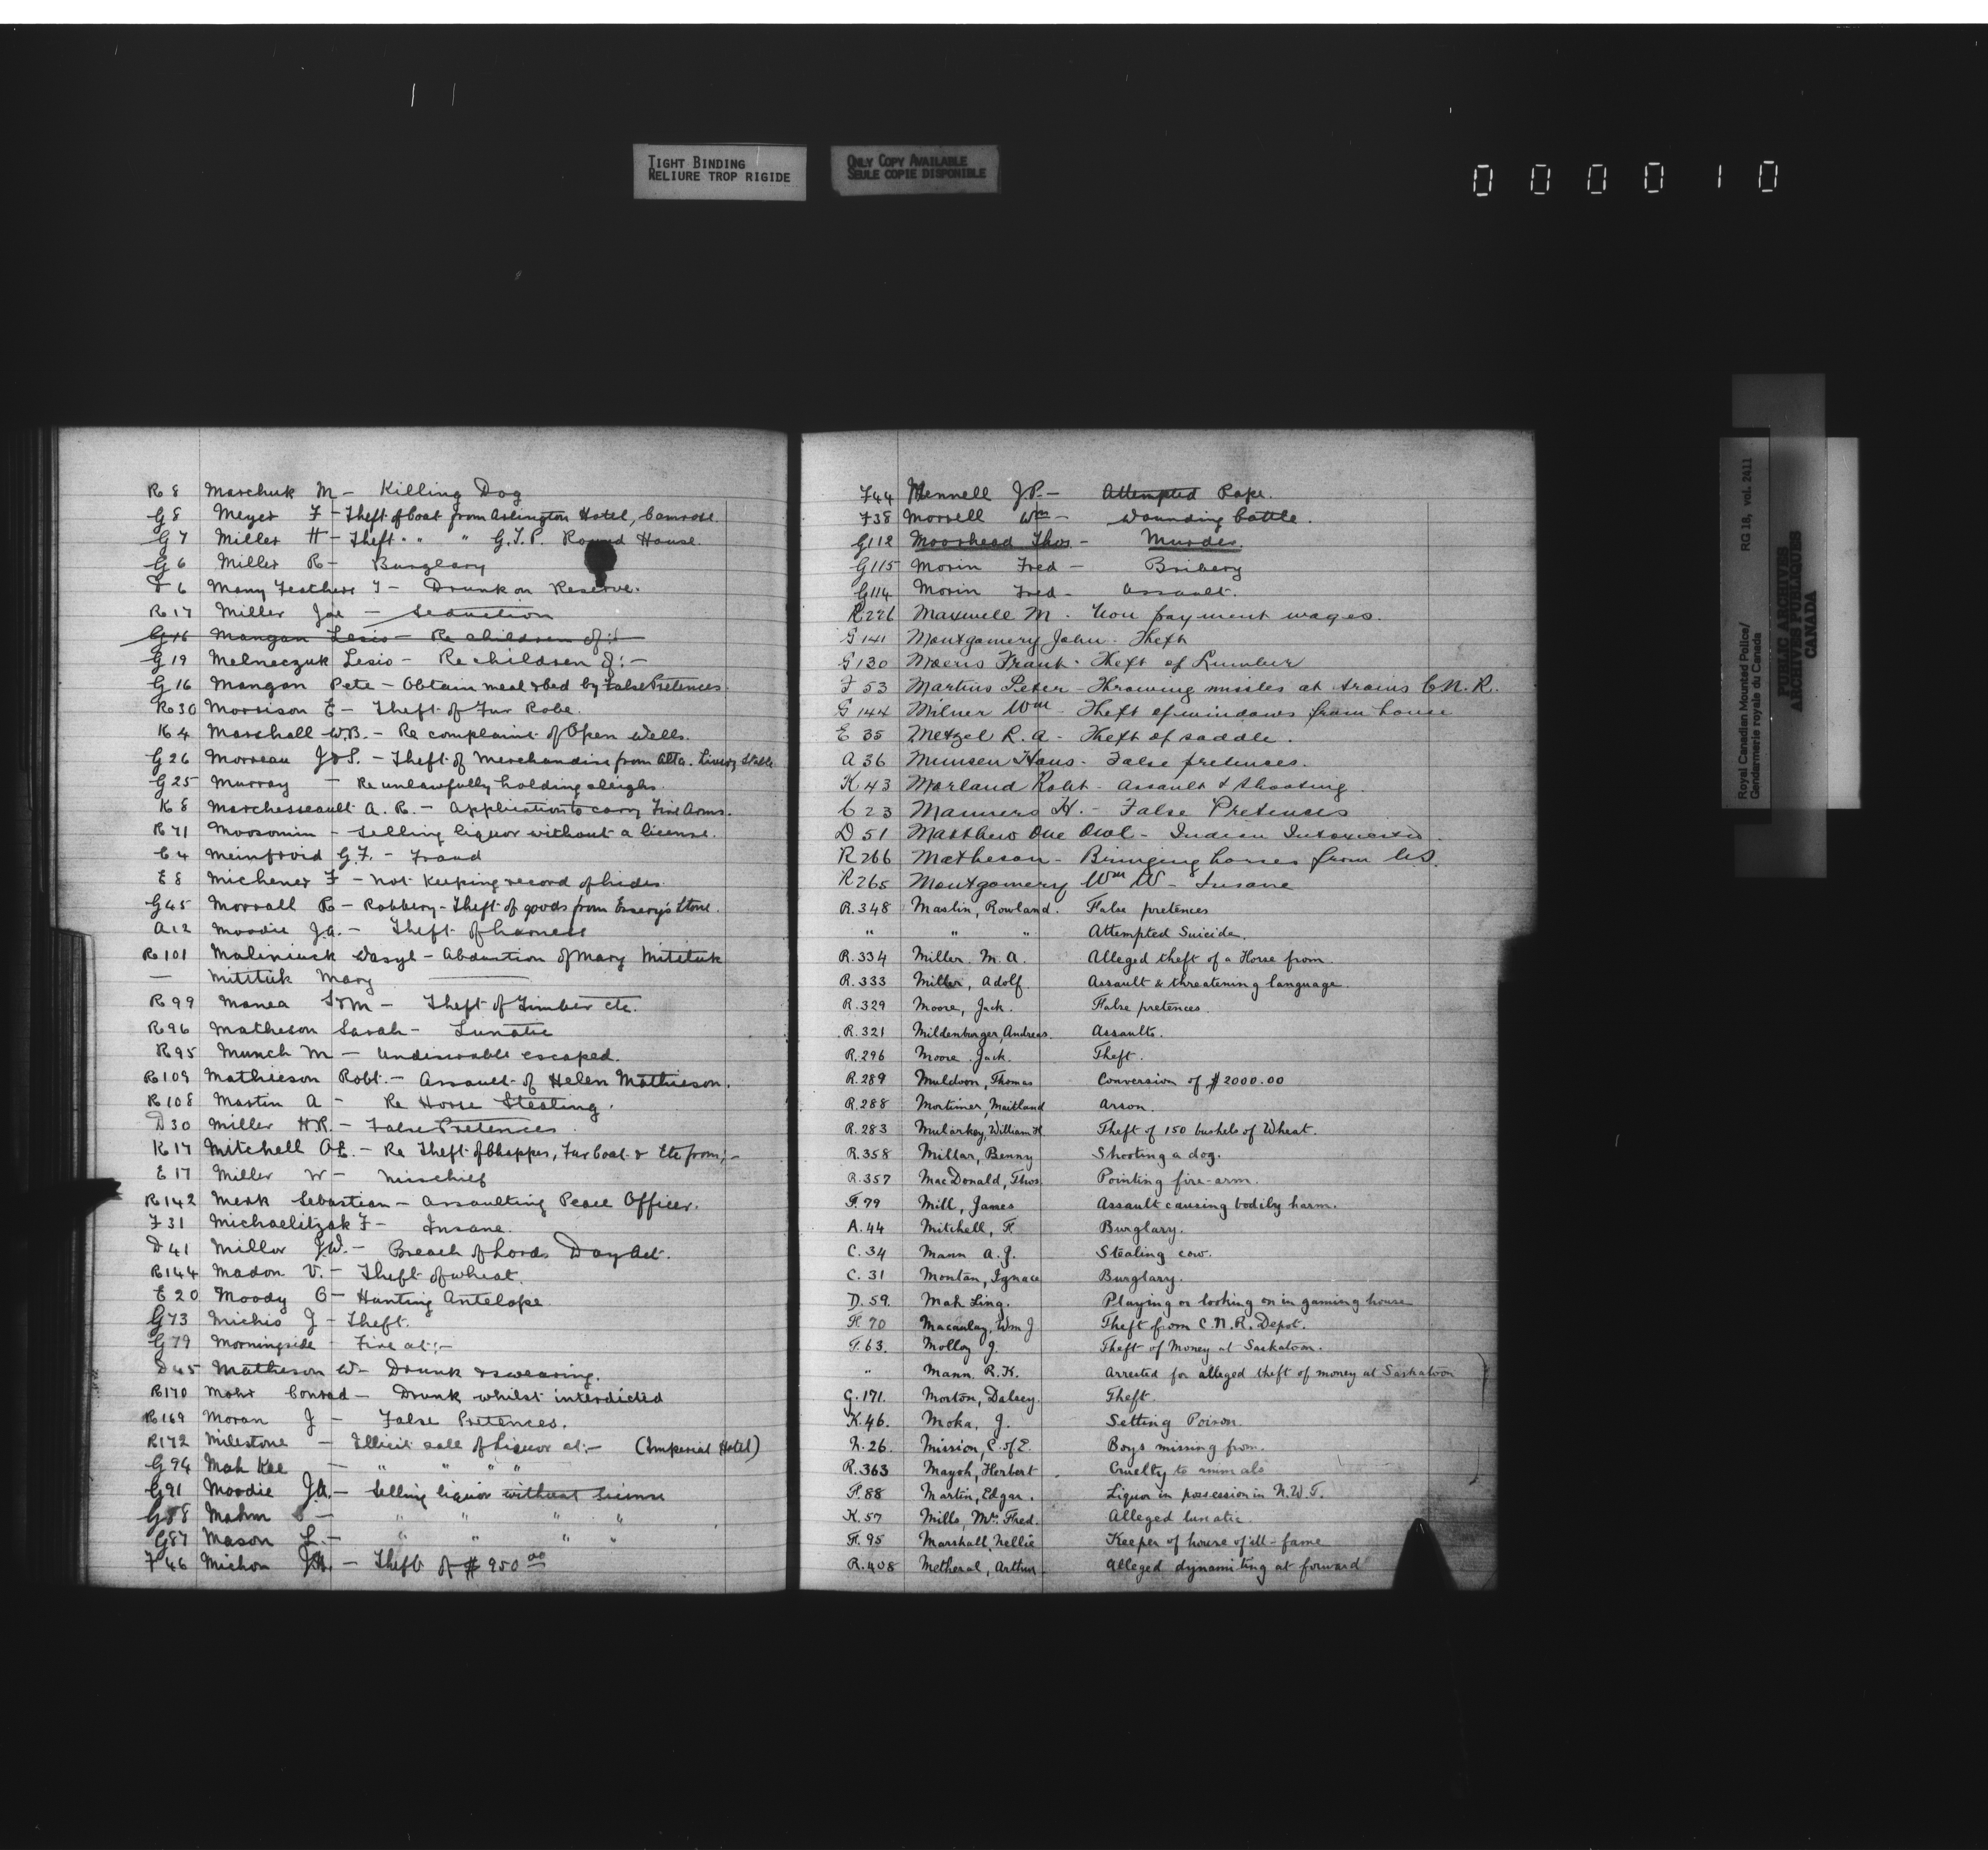 TIGHT BINDING
RELIURE TROP RIGIDE
ONLY COPY AVAILABLE
SEULE COPIE DISPONIBLE
0 0 0 0 1 0
R 8 Marchuk M – Killing Dog
G 8 Meyer F – Theft of Coat from Arlington Hotel, Camrose.
G 7 Miller H – Theft " " " G.T.P. Round House.
G 6 Miller R – Burglary
D 6 Many Feathers J – Drunk on Reserve.
R 17 Miller Joe – Seduction
G 16 Mangan Lesio – Re children of :–
G 19 Melneczuk Lesio – Re children of :–
G 16 Mangan Pete – Obtain meal & bed by False Pretences
R 30 Morrison E – Theft of Fur Robe.
K 4 Marshall W.B. – Re complaint of Open Wells.
G 26 Morreau J & S. – Theft of Merchandise from Alta. Livery Stable
G 25 Murray – Re unlawfully holding sleighs.
K 8 Marchesseault A. R. – Application to carry Fire Arms.
R 71 Moosomin – Selling liquor without a license.
C 4 Meinfroid G.F. – Fraud
E 8 Michener F – Not keeping record of hides.
G 45 Morrall R – Robbery – Theft of goods from Essery's Store.
A 12 Moodie J.A. – Theft of harness
R 101 Maliniuck Wasyl – Abduction of Mary Mitituk
— Mitituk Mary
R 99 Manea S & M – Theft of Timber etc.
R 96 Matheson Sarah – Lunatic
R 95 Munch M – Undesirable escaped.
R 109 Mathieson Robt. – Assault of Helen Mathieson.
R 108 Martin A – Re Horse Stealing.
D 30 Miller H.R. – False Pretences
K 17 Mitchell A.E. – Re Theft of Chopper, Fur Coat & Etc from; –
E 17 Miller W – Mischief
R 142 Merk Sebastian – Assaulting Peace Officer.
F 31 Michaelitzak F – Insane.
D 41 Miller J.W. – Breach of Lords Day Act.
R 144 Madon V. – Theft of wheat.
E 20 Moody G – Hunting Antelope.
G 73 Michio J – Theft.
G 79 Morningside – Fire at :–
D 45 Matheson W – Drunk & swearing.
R 170 Mohr Conrad – Drunk whilst interdicted
R 169 Moran J – False Pretences.
R 172 Milestone – Illicit sale of Liquor at :– (Imperial Hotel)
G 94 Mah Kee – " " " "
G 91 Moodie J.A. – Selling liquor without license
G 88 Mahm – " " " "
G 87 Mason L. – " " " "
F 46 Michon – Theft of $950 00
F 44 Mennell J.P. – Attempted Rape.
F 38 Morrell Wm – Wounding Cattle.
G 112 Moorhead Thos – Murder.
G 115 Morin Fred – Bribery
G 114 Morin Fred – Assault.
R 226 Maxwell M. Non payment wages.
G 141 Montgomery John. Theft
G 130 Moeris Frank. Theft of Lumber
F 53 Martins Peter – Throwing missles at trains C.N.R.
G 144 Milner Wm – Theft of windows from house
E 35 Metzel R. A. – Theft of saddle.
A 36 Munsen Hans – False pretenses.
K 43 Morland Robt – Assault & Shooting.
C 23 Manners H. – False Pretenses
D 51 Matthew One Owl – Indian Intoxicated.
R 266 Matheson – Bringing horses from U.S.
R 265 Montgomery Wm W – Insane
R. 348 Maslin, Rowland. False pretences
" " " Attempted Suicide.
R. 334 Miller M. A. Alleged theft of a Horse from.
R. 333 Miller, Adolf Assault & threatening language.
R. 329 Moore, Jack. False pretences
R. 321 Mildenburger, Andreas. Assault.
R. 296 Moore Jack. Theft.
R. 289 Muldoon, Thomas Conversion of $2000.00
R. 288 Mortimer, Maitland Arson.
R. 283 Mularkey, William H. Theft of 150 bushels of Wheat.
R. 358 Millar, Benny Shooting a dog.
R. 357 MacDonald, Thos Pointing fire-arm.
F. 79 Mill, James Assault causing bodily harm.
A. 44 Mitchell, F. Burglary.
C. 34 Mann A. J. Stealing cow.
C. 31 Montan, Ignace Burglary.
D. 59. Mah Ling. Playing or looking on in gaming house
F. 70 Macaulay, Wm J Theft from C.N.R. Depot.
F. 63. Molloy J. Theft of Money at Saskatoon.
" Mann. R. K. Arrested for alleged theft of money at Saskatoon
G. 171. Morton, Dalsey. Theft.
K. 46. Moka, J. Setting Poison.
N. 26. Mission, C. of E. Boys missing from.
R. 363 Mayoh, Herbert. Cruelty to animals
F. 88 Martin, Edgar. Liquor in possession in N.W.T.
K. 57 Mills, Mrs. Fred. Alleged lunatic.
F. 95 Marshall, Nellie Keeper of house of ill-fame
R. 408 Metheral, Arthur – Alleged dynamiting at forward
Royal Canadian Mounted Police/
Gendarmerie royale du Canada
RG 18, vol. 2411
PUBLIC ARCHIVES
ARCHIVES PUBLIQUES
CANADA